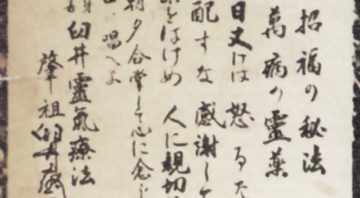 招福の秘法
萬病の霊薬
日丈は 怒るな
配すな 感謝して
をはけめ 人に親切に
朝夕合掌して心に念じ
唱へよ
臼井靈氣療法
肇祖 臼井